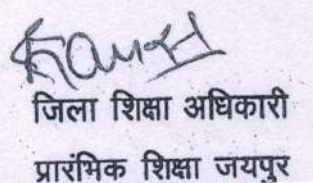 जिला शिक्षा अधिकारी
प्रारंभिक शिक्षा जयपुर